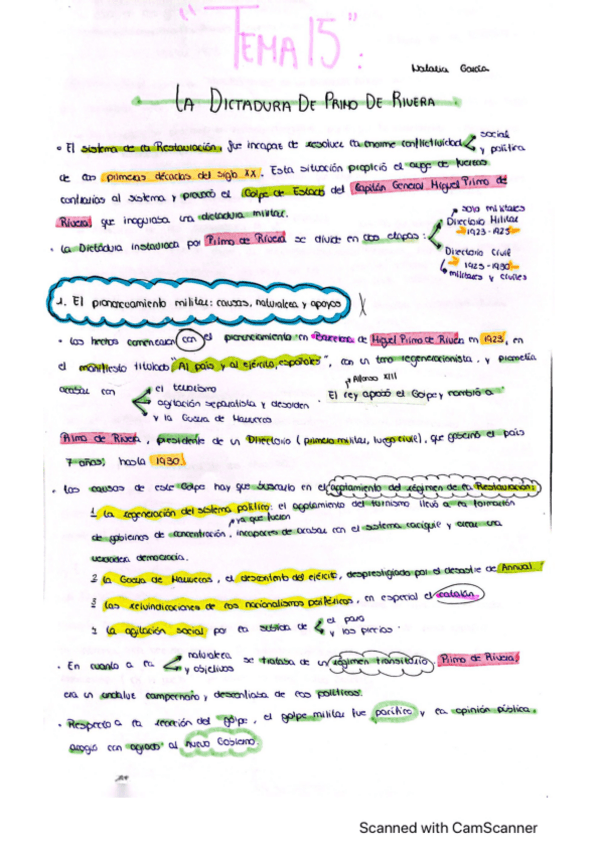 "TEMA 15":
Natalia García
LA DICTADURA DE PRIMO DE RIVERA
• El sistema de la Restauración, fue incapaz de resolver la enorme conflictividad social y política
de las primeras décadas del siglo XX. Esta situación propició el auge de fuerzas
contrarias al sistema y provocó el Golpe de Estado del Capitán General Miguel Primo de
Rivera, que inaguraba una dictadura militar.
• La Dictadura instaurada por Primo de Rivera se divide en dos etapas:
solo militares
Directorio Militar
1923-1925
Directorio Civil
1925-1930
militares y civiles
1. El pronunciamiento militar: causas, naturaleza y apoyos
• Los hechos comenzaron con el pronunciamiento en Barcelona de Miguel Primo de Rivera en 1923, en
el manifiesto titulado "Al país y al ejército, españoles", con un tono regeneracionista. y prometía
acabar con
el terrorismo
agitación separatista y desorden.
y la Guerra de Marruecos
Alfonso XIII
El rey apoyó el Golpe y nombró a
Primo de Rivera, presidente de un Directorio (primero militar, luego civil), que gobernó el país
7 años, hasta 1930.
• Las causas de este Golpe hay que buscarlo en el agotamiento del régimen de la Restauración:
1 La regeneración del sistema político: el agotamiento del turnismo llevó a la formación
ya que fueron
de gobiernos de concentración, incapaces de acabar con el sistema caciquil y crear una
verdadera democracia.
2 La Guerra de Marruecos, el descontento del ejército, desprestigiado por el desastre de Annual.
3 Las reivindicaciones de los nacionalismos periféricos, en especial el catalán.
La agitación social por la subida de
el paro
y los precios.
• En cuanto a la
naturaleza
y objetivos
se trataba de un régimen transitorio. Primo de Rivera,
era un andaluz campechano y desconfiaba de los políticos.
• Respecto a la reacción del golpe, el golpe militar fue pacífico y la opinión pública,
acogió con agrado al nuevo Gobierno.
Scanned with CamScanner